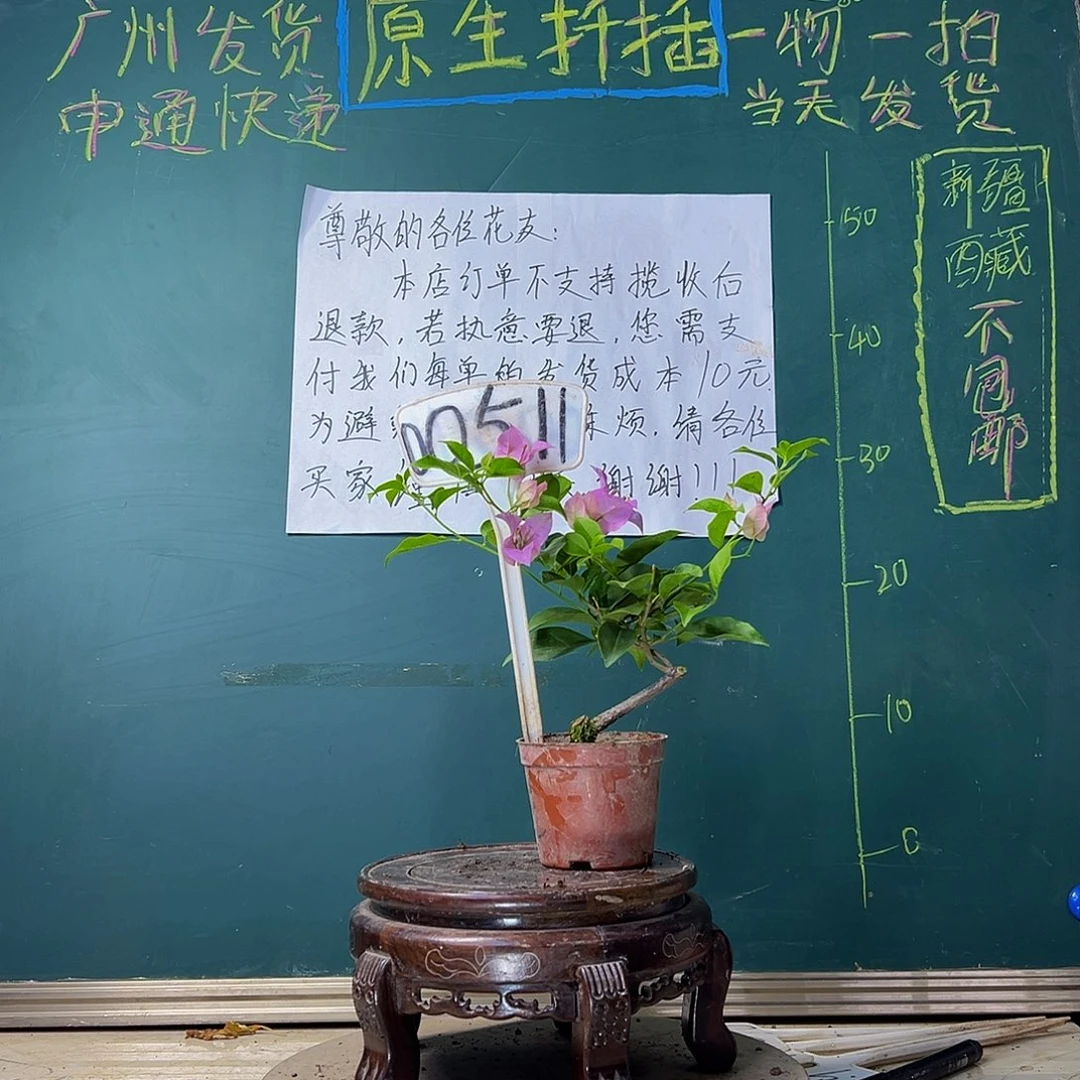 广州发货
申通快递
原生扦插
一物一拍
当天发货
新疆
西藏
不
包
邮
尊敬的各位花友:
本店订单不支持揽收后
退款,若执意要退,您需支
付我们每单的发货成本10元
为避 麻烦,请各位
买家 谢谢!!!
00511
50
40
30
20
10
0